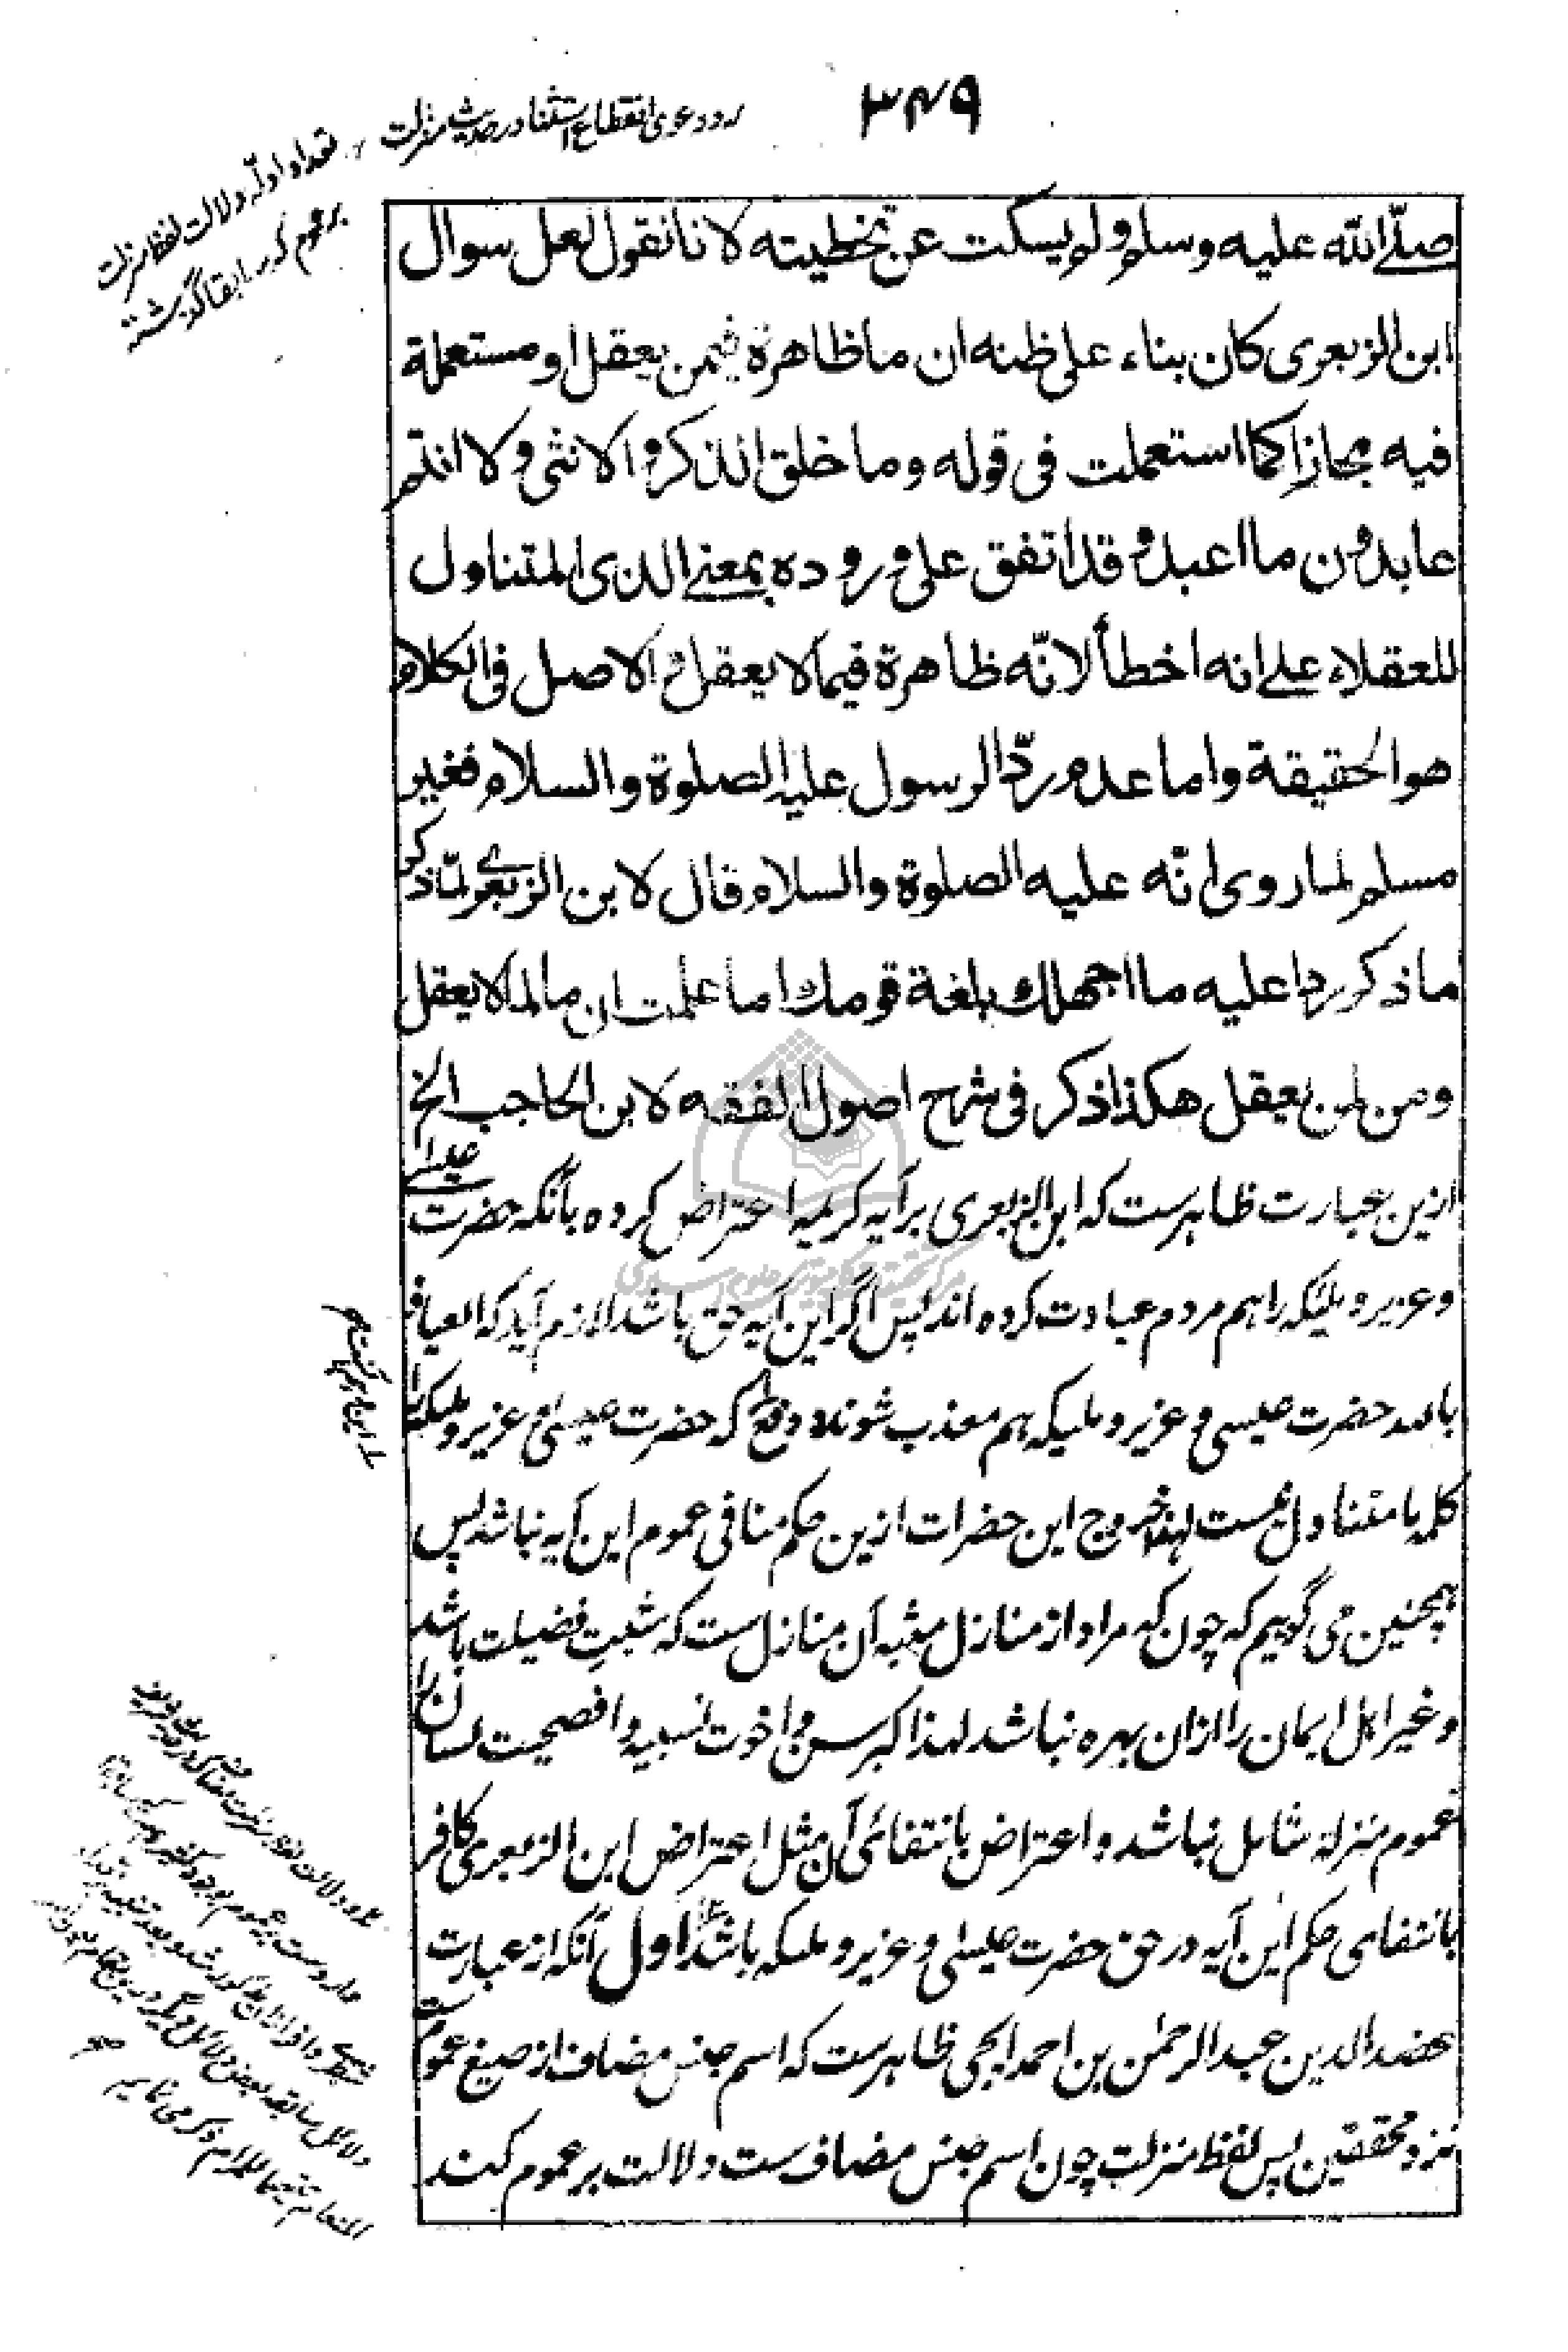 ۳۴۹
رد دعوی انقطاع استثنا در حدیث منزلت
تعداد ادلّه دلالت لفظ منزلت
بر عموم که سابقا گذشته
صلّی الله علیه وسلم ولم یسکت عن تخطیته لا نا نقول لعل سوال
ابن الزبعری کان بناء علی ظنه ان ما ظاهرة فیمن یعقل او مستعملة
فیه مجازا کما استعملت فی قوله وما خلق الذکر والانثی ولا انتم
عابدون ما اعبد وقد اتفق علی وروده بمعنی الذی المتناول
للعقلاء علی انه اخطأ لانّه ظاهرة فیما لا یعقل والاصل فی الکلام
هو الحقیقة واما عدم ردّ الرسول علیه الصلوة والسلام فغیر
مسلم لما روی انّه علیه الصلوة والسلام قال لا بن الزبعری لمّا ذکر
ما ذکر ردا علیه ما اجهلك بلغة قومك اما علمت ان ما لما لا یعقل
ومن لمن یعقل هکذا ذکر فی شرح اصول الفقه لا بن الحاجب الخ
ازین عبارت ظاهرست که ابن الزبعری بر آیه کریمه اعتراض کرده بآنکه حضرت عیسی
و عزیر و ملیکه را هم مردم عبادت کرده اند پس اگر این آیه حق باشد لازم آید که العیاذ
بالله حضرت عیسی و عزیر و ملیکه هم معذب شوند و که حضرت عیسی و عزیر و ملیکه را
کلمه ما متناول نیست لهذا خروج این حضرات ازین حکم منافی عموم این آیه نباشد پس
همچنین می گوییم که چون که مراد از منازل مشبه آن منازل ست که مثبت فضیلت باشد
و غیر اهل ایمان را ازان بهره نباشد لهذا کبر سن و اخوت نسبیه و افصحیت لسان را
عموم منزله شامل نباشد و اعتراض بانتفائی آن مثل اعتراض ابن الزبعری کافر
بانتفای حکم این آیه در حق حضرت عیسی و عزیر و ملیکه باشد اول آنکه از عبارت
عضد الدین عبد الرحمٰن بن احمد ایجی ظاهرست که اسم جنس مضاف از صیغ عموم ست
نزد محققین پس لفظ منزلت چون اسم جنس مضاف ست دلالت بر عموم کند